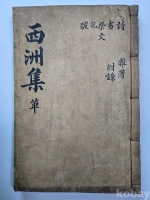 封 雜著
書 附錄
祭文
記
跋
西洲集 單
kobay